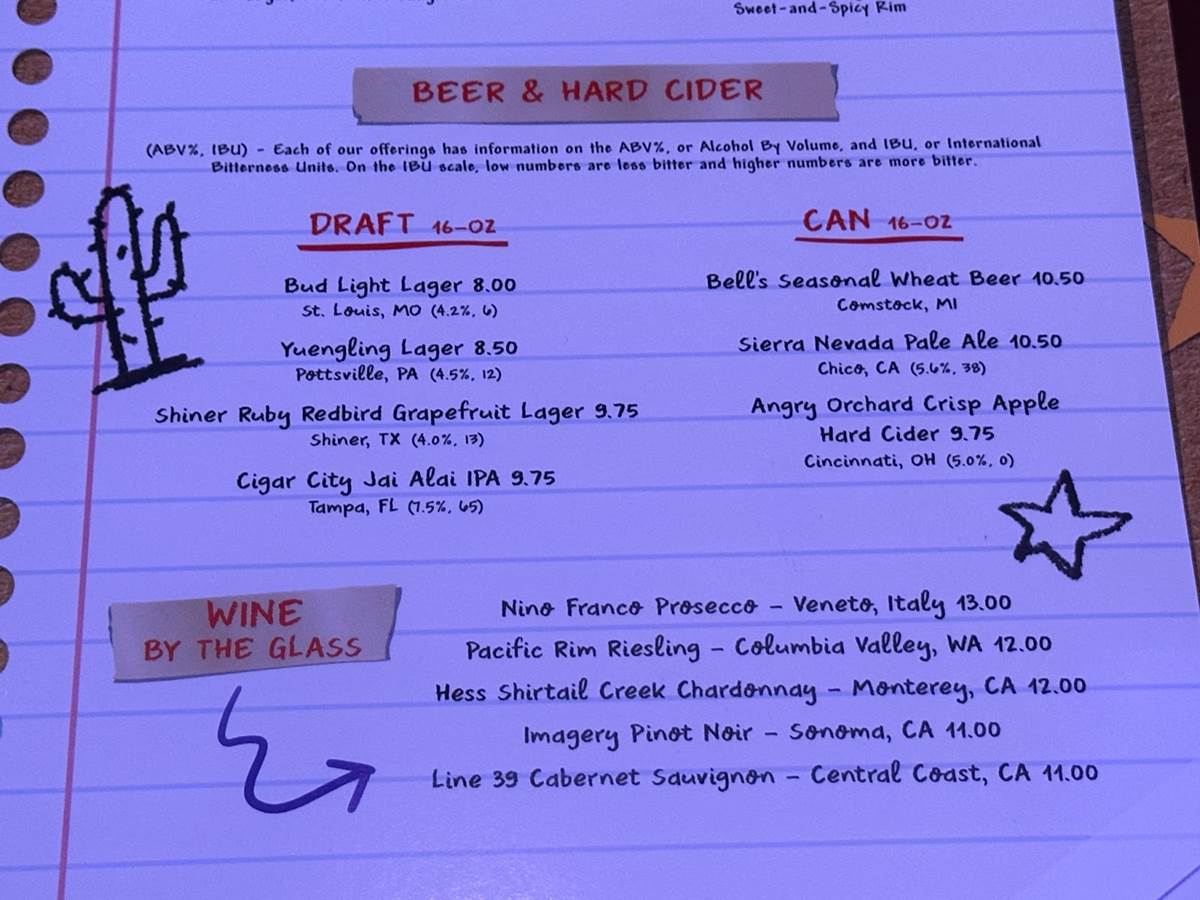 Sweet-and-Spicy Rim
BEER & HARD CIDER
(ABV%, IBU) - Each of our offerings has information on the ABV%, or Alcohol By Volume, and IBU, or International
Bitterness Units. On the IBU scale, low numbers are less bitter and higher numbers are more bitter.
DRAFT 16-OZ
Bud Light Lager 8.00
St. Louis, MO (4.2%, 6)
Yuengling Lager 8.50
Pottsville, PA (4.5%, 12)
Shiner Ruby Redbird Grapefruit Lager 9.75
Shiner, TX (4.0%, 13)
Cigar City Jai Alai IPA 9.75
Tampa, FL (7.5%, 65)
CAN 16-OZ
Bell's Seasonal Wheat Beer 10.50
Comstock, MI
Sierra Nevada Pale Ale 10.50
Chico, CA (5.6%, 38)
Angry Orchard Crisp Apple
Hard Cider 9.75
Cincinnati, OH (5.0%, 0)
WINE
BY THE GLASS
Nino Franco Prosecco – Veneto, Italy 13.00
Pacific Rim Riesling – Columbia Valley, WA 12.00
Hess Shirtail Creek Chardonnay – Monterey, CA 12.00
Imagery Pinot Noir – Sonoma, CA 11.00
Line 39 Cabernet Sauvignon – Central Coast, CA 11.00